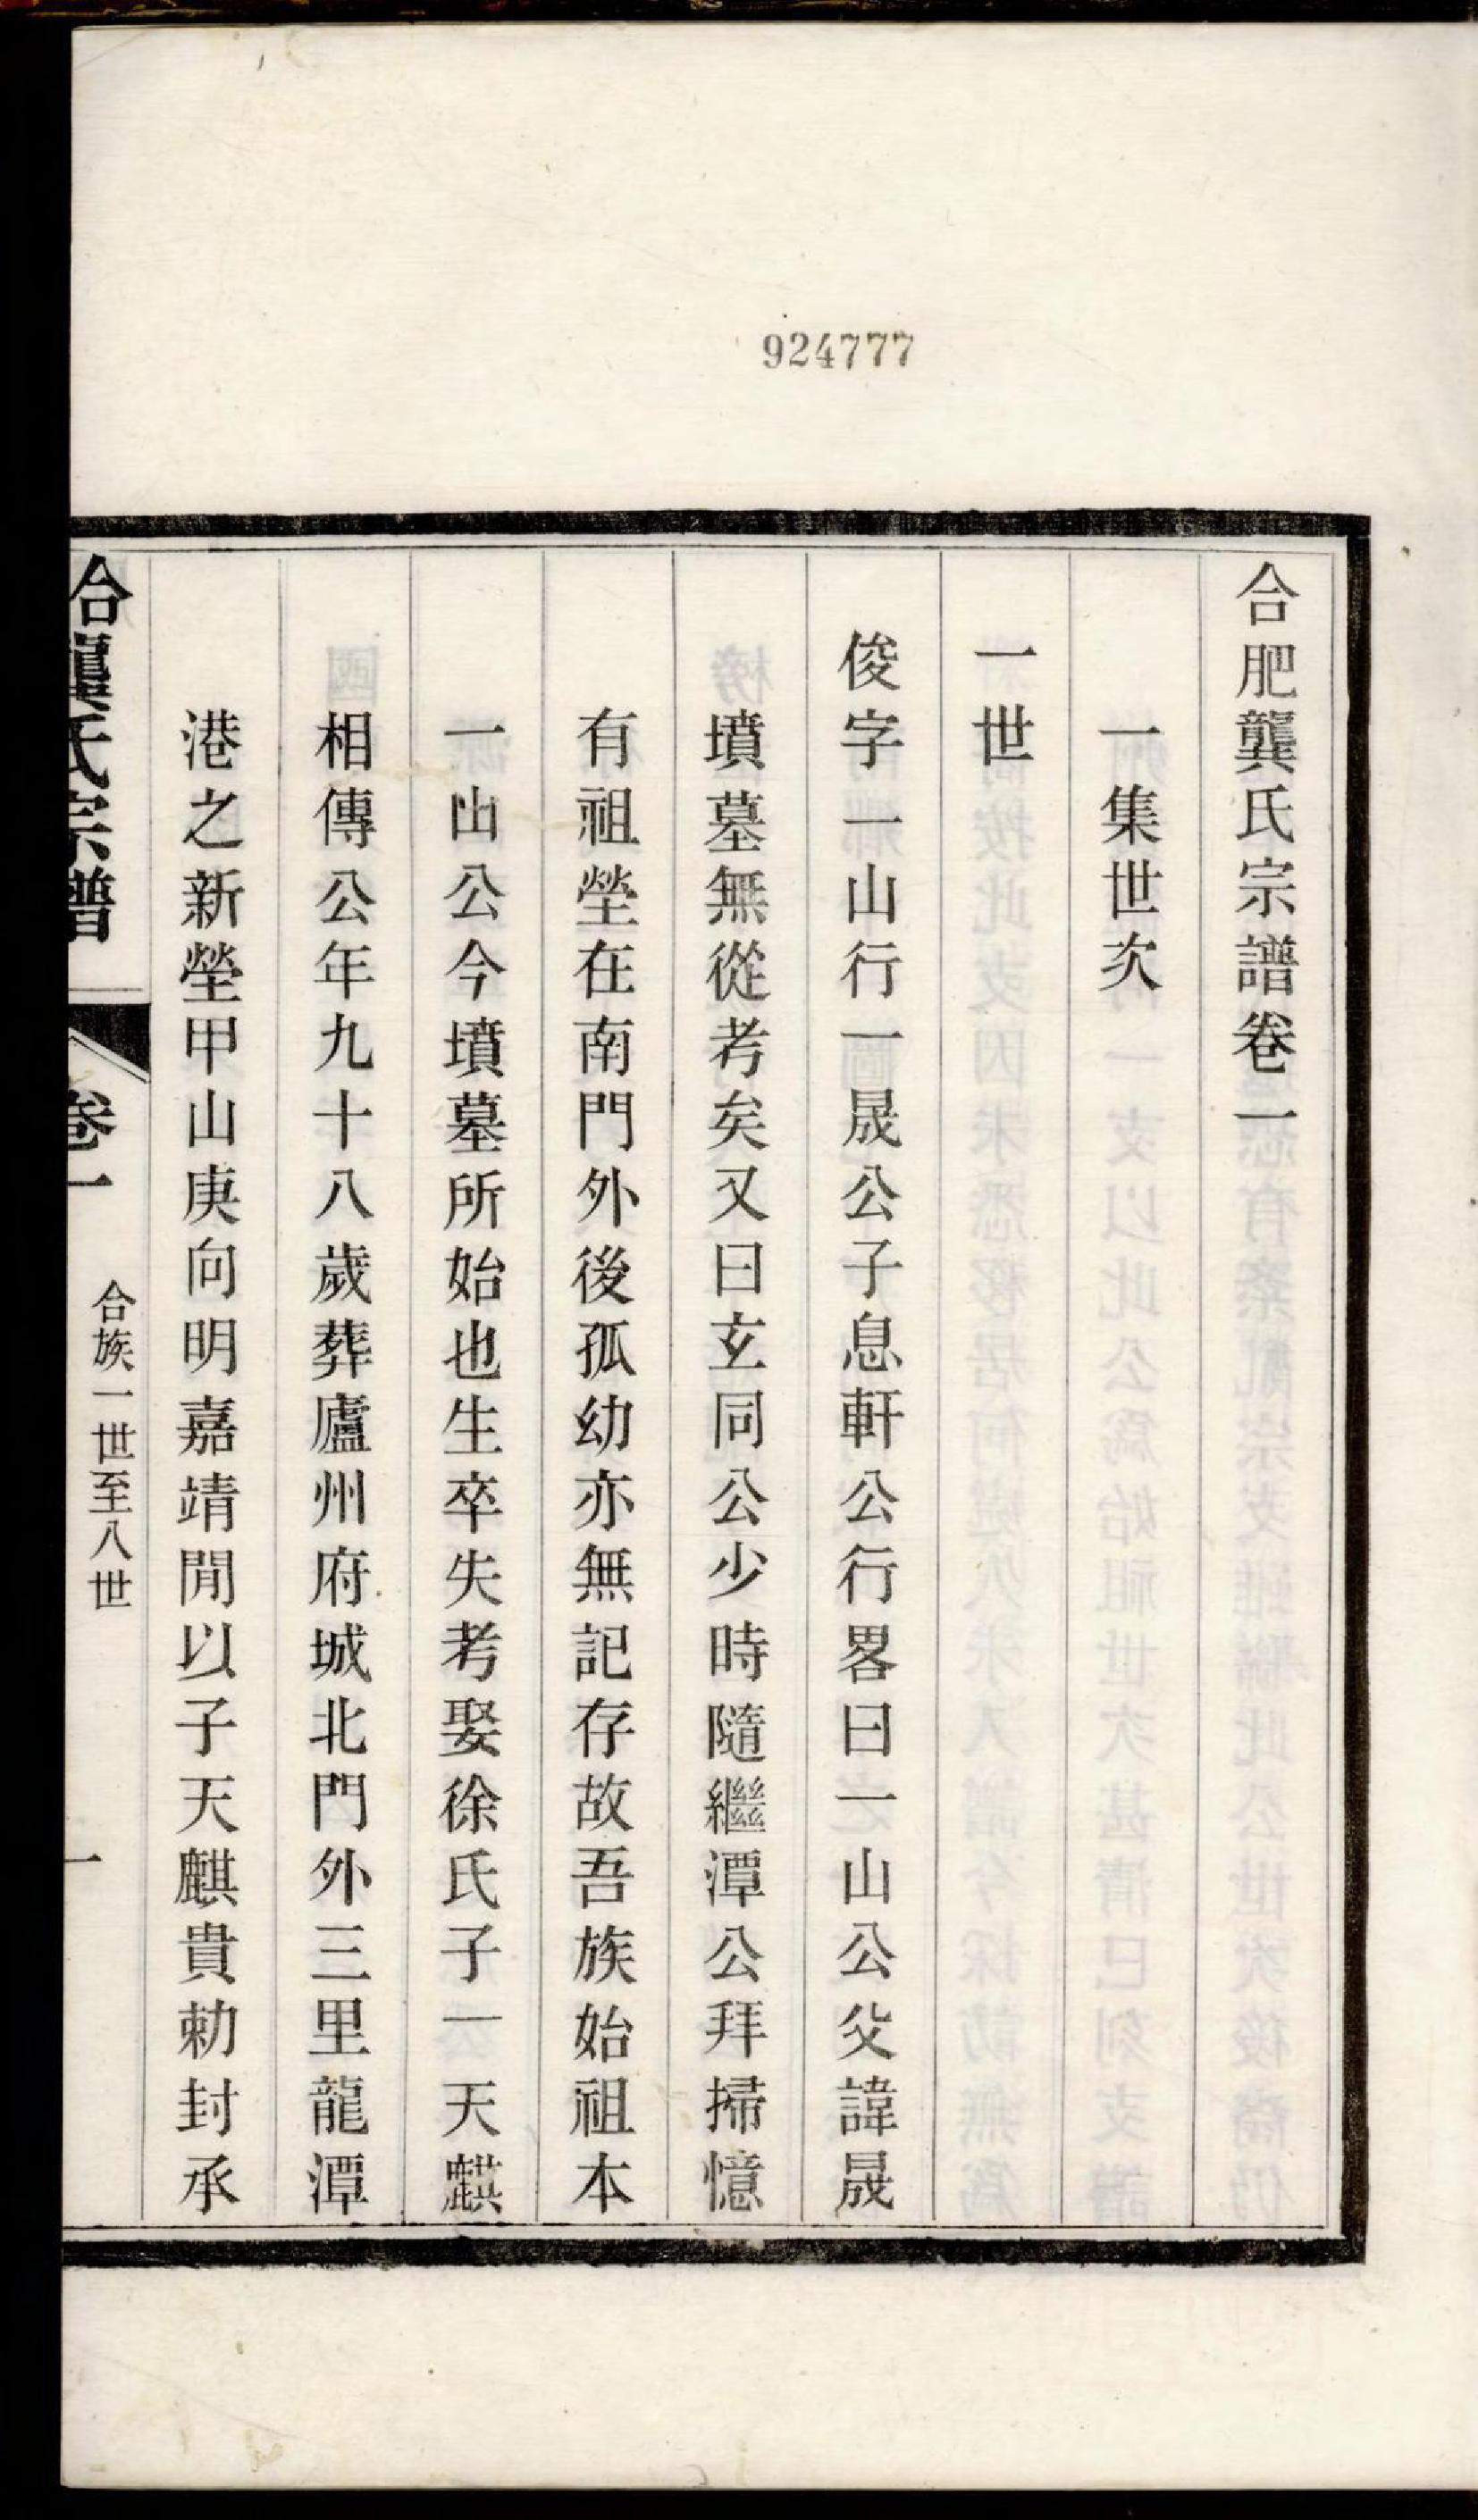 924777
合肥龔氏宗譜卷一
一集世次
一世
俊字一山行一晟公子息軒公行畧曰一山公父諱晟
墳墓無從考矣又曰玄同公少時隨繼潭公拜掃憶
有祖塋在南門外後孤幼亦無記存故吾族始祖本
一山公今墳墓所始也生卒失考娶徐氏子一天麒
相傳公年九十八歲葬廬州府城北門外三里龍潭
港之新塋甲山庚向明嘉靖閒以子天麒貴勅封承
合肥龔氏宗譜 卷一 合族一世至八世 一